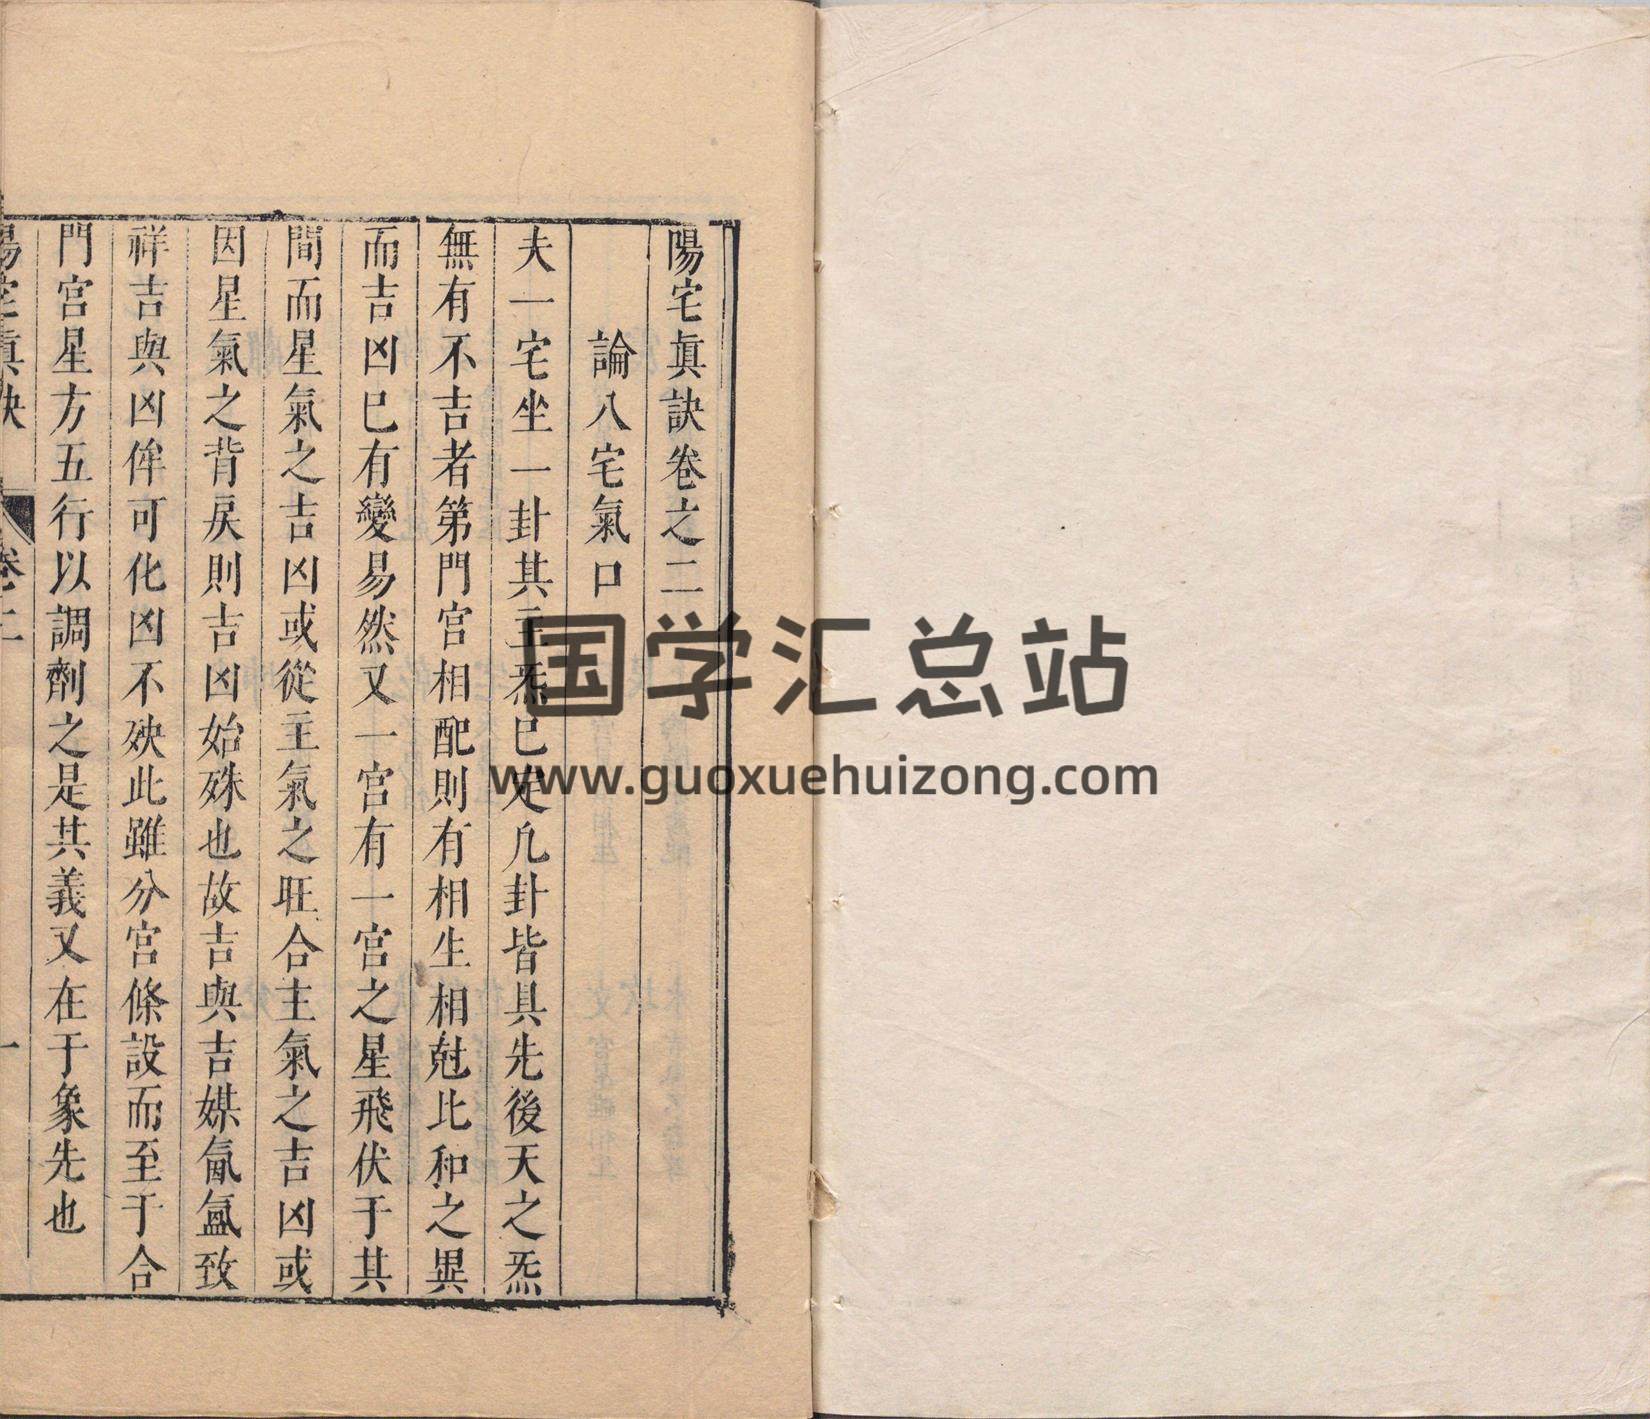 陽宅眞訣卷之二
論八宅氣口
夫一宅坐一卦其主炁已定凢卦皆具先後天之炁
無有不吉者第門宮相配則有相生相尅比和之異
而吉凶巳有變易然又一宮有一宮之星飛伏于其
間而星氣之吉凶或從主氣之旺合主氣之吉凶或
因星氣之背戾則吉凶始殊也故吉與吉媒氤氳致
祥吉與凶侔可化凶不殃此雖分宮條設而至于合
門宮星方五行以調劑之是其義又在于象先也
陽宅眞訣 卷二 一
国学汇总站
www.guoxuehuizong.com